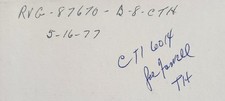 RVG-87670-D-8-CTH
5-16-77
CTI 6014
Joe Farrell
TH